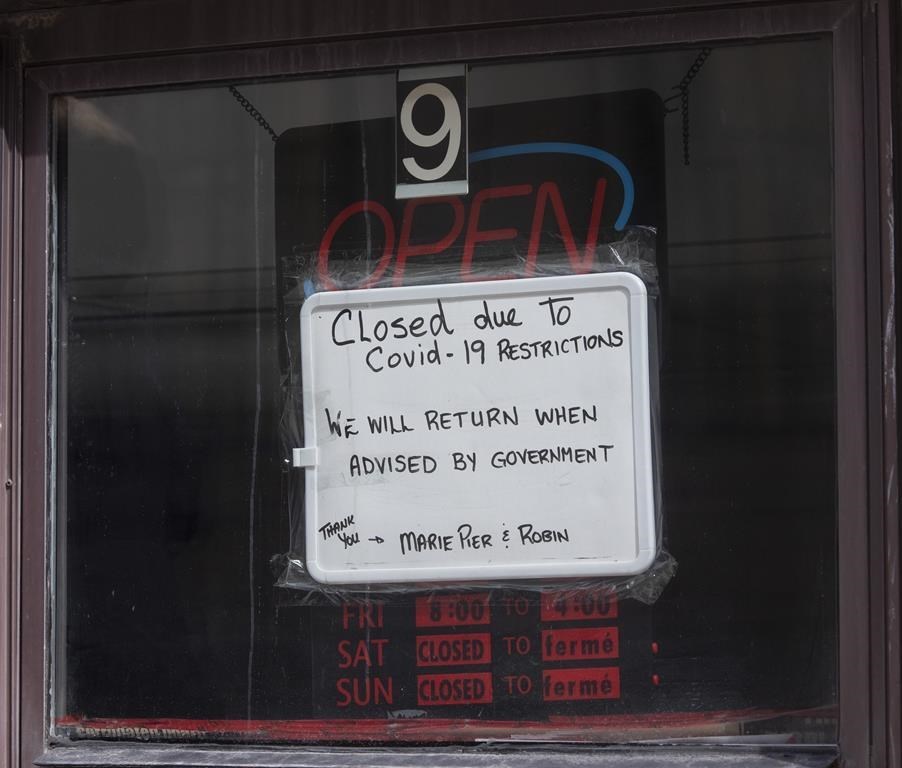 9
OPEN
Closed due To
Covid-19 RESTRICTIONS
WE WILL RETURN WHEN
ADVISED BY GOVERNMENT
THANK YOU → MARIE PIER & ROBIN
FRI 8:00 TO 4:00
SAT CLOSED TO fermé
SUN CLOSED TO fermé